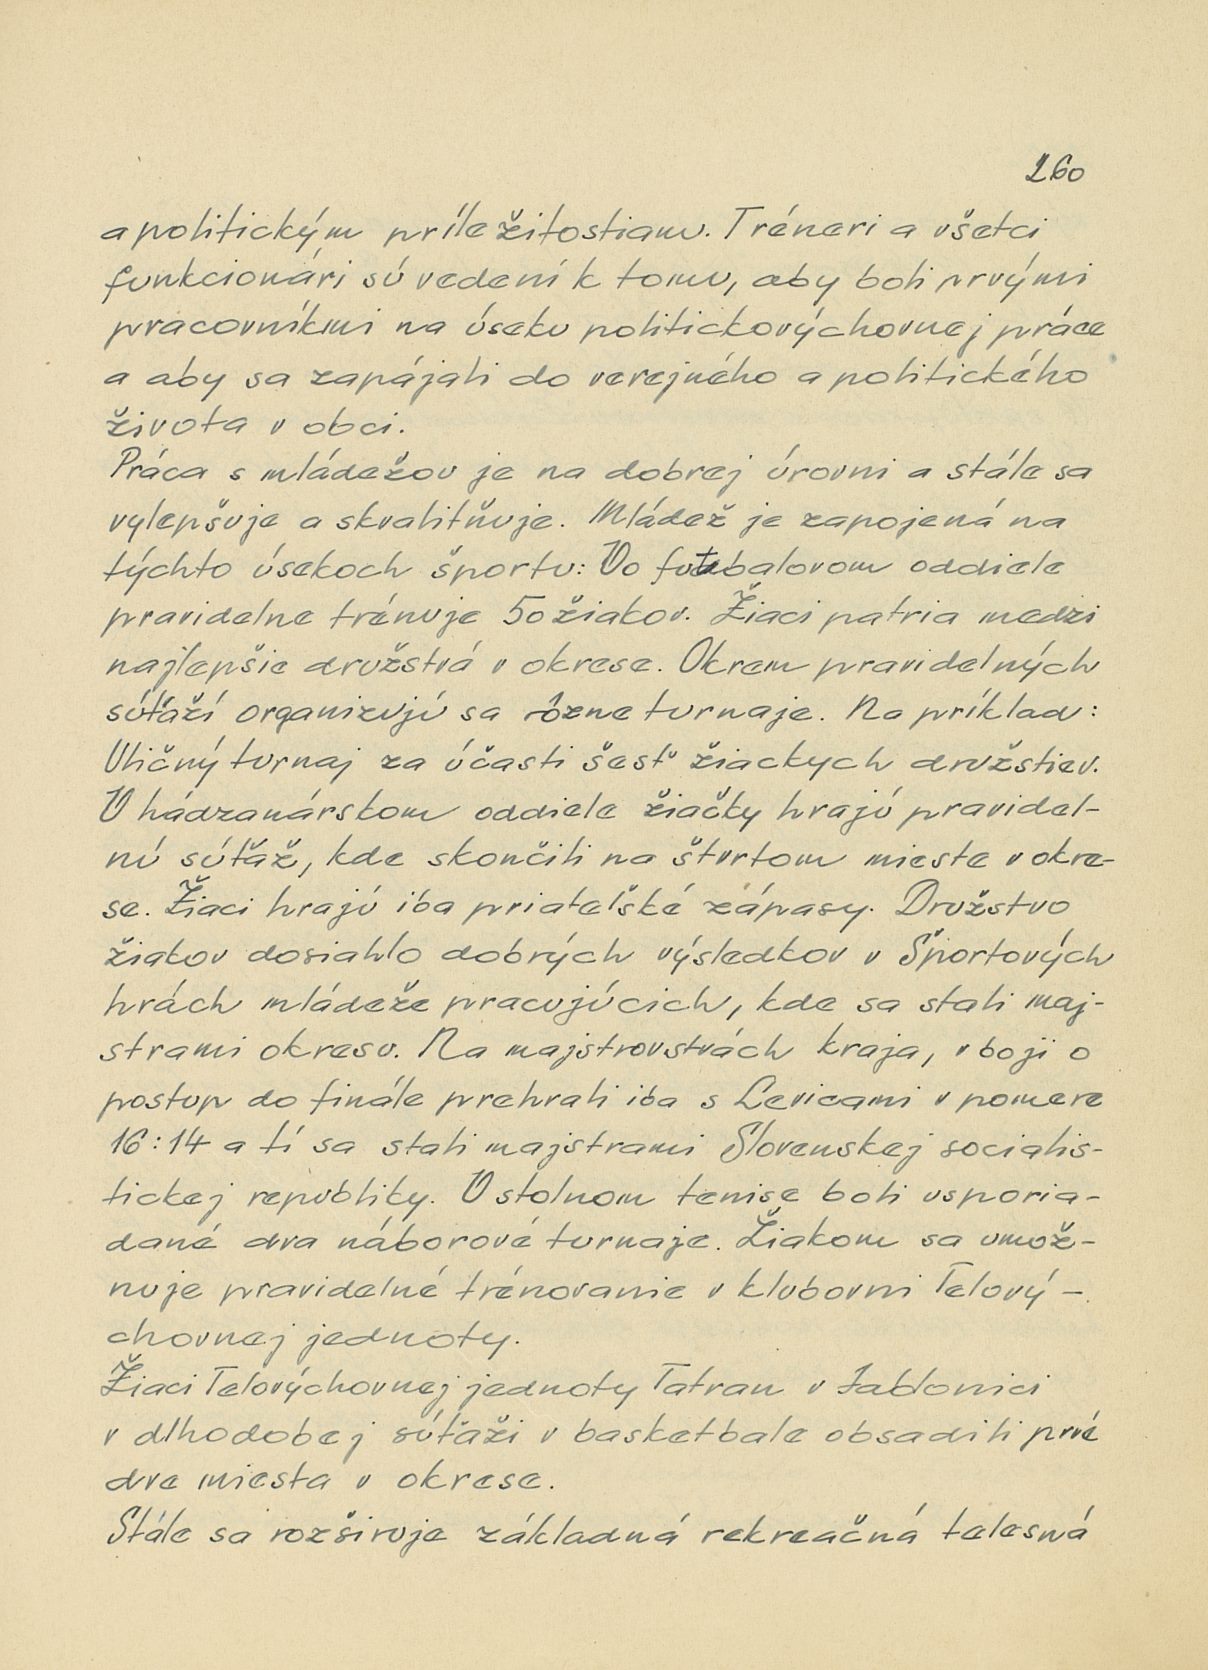 260
a politickým príležitostiam. Tréneri a všetci
funkcionári sú vedení k tomu, aby boli prvými
pracovníkmi na úseku politickovýchovnej práce
a aby sa zapájali do verejného a politického
života v obci.
Práca s mládežou je na dobrej úrovni a stále sa
vylepšuje a skvalitňuje. Mládež je zapojená na
týchto úsekoch športu: Vo futbalovom oddiele
pravidelne trénuje 50 žiakov. Žiaci patria medzi
najlepšie družstvá v okrese. Okrem pravidelných
súťaží organizujú sa rôzne turnaje. Na príklad:
Uličný turnaj za účasti šesť žiackych družstiev.
V hádzanárskom oddiele žiačky hrajú pravidel-
nú súťaž, kde skončili na štvrtom mieste v okre-
se. Žiaci hrajú iba priateľské zápasy. Družstvo
žiakov dosiahlo dobrých výsledkov v Športových
hrách mládeže pracujúcich, kde sa stali maj-
strami okresu. Na majstrovstvách kraja, v boji o
postup do finále prehrali iba s Levicami v pomere
16:14 a tí sa stali majstrami Slovenskej socialis-
tickej republiky. V stolnom tenise boli usporia-
dané dva náborové turnaje. Žiakom sa umož-
nuje pravidelné trénovanie v klubovni Telový-
chovnej jednoty.
Žiaci Telovýchovnej jednoty Tatran v Jablonici
v dlhodobej súťaži v basketbale obsadili prvé
dve miesta v okrese.
Stále sa rozširuje základná rekreačná telesná